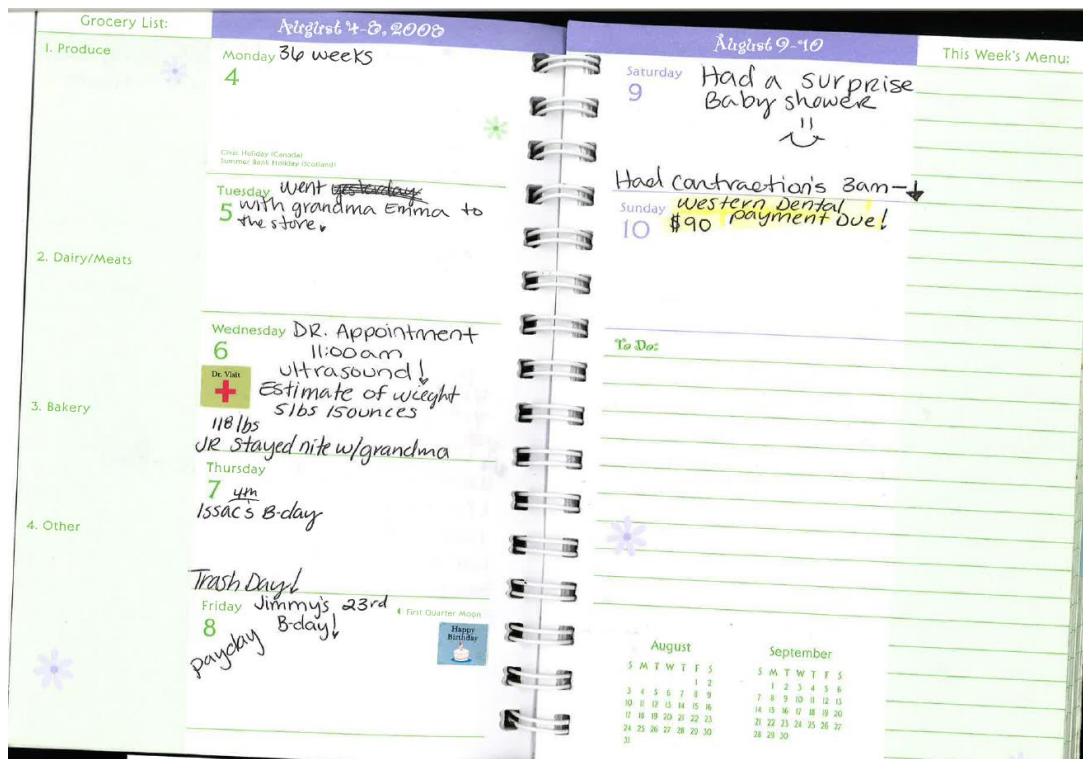 Grocery List:
1. Produce
2. Dairy/Meats
3. Bakery
4. Other
August 4-8, 2008
Monday 36 weeks
4
Civic Holiday (Canada)
Summer Bank Holiday (Scotland)
Tuesday went yesterday
5 with grandma Emma to
the store.
Wednesday DR. Appointment
6 11:00am
ultrasound!
Dr. Visit
Estimate of wieght
5lbs 15ounces
118 lbs
JR stayed nite w/grandma
Thursday
7 4m
Issac's B-day
Trash Day!
Friday Jimmy's 23rd
First Quarter Moon
8 B-day!
payday
Happy
Birthday
August 9-10
Saturday Had a surprise
9 Baby shower
Had contraction's 3am-
Sunday western Dental
10 $90 payment Due!
To Do:
August
S M T W T F S
1 2
3 4 5 6 7 8 9
10 11 12 13 14 15 16
17 18 19 20 21 22 23
24 25 26 27 28 29 30
31
September
S M T W T F S
1 2 3 4 5 6
7 8 9 10 11 12 13
14 15 16 17 18 19 20
21 22 23 24 25 26 27
28 29 30
This Week's Menu: